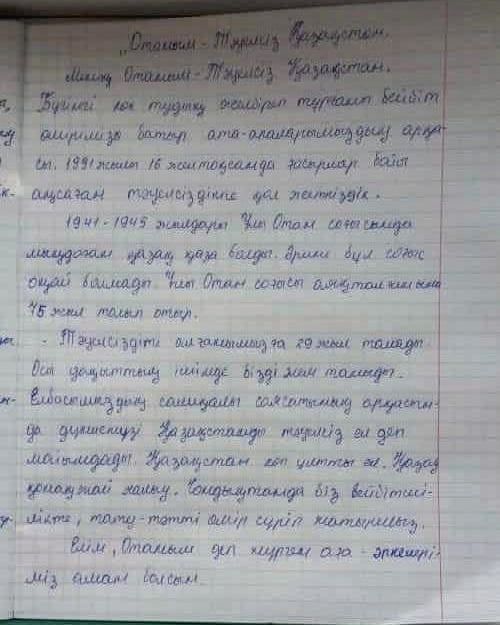 „Отаным - Тәуелсіз Қазақстан.
Менің Отаным - Тәуелсіз Қазақстан.
Бүгінгі көк тудың желбіреп тұрғаны бейбіт
өміріміз батыр ата-апаларымыздың арқа-
сы. 1991 жылы 16 желтоқсанда ғасырлар бойы
аңсаған тәуелсіздікке қол жеткіздік.
1941-1945 жылдары Ұлы Отан соғысында
мыңдаған қазақ қаза болды. Әрине бұл соғыс
оңай болмады. Ұлы Отан соғысы аяқталғанына
75 жыл толып отыр.
Тәуелсіздік алғанымызға 29 жыл толады.
Осы уақыттың ішінде бізді әлем таныды.
Елбасымыздың салиқалы саясатының арқасын-
да дүниежүзі Қазақстанды тәуелсіз ел деп
мойындады. Қазақстан көп ұлтты ел. Қазақ
қонақжай халық. Сондықтанда біз бейбітші-
лікте, тату-тәтті өмір сүріп жатырмыз.
Елім, Отаным деп жүрген аға-әркелері-
міз аман болсын.